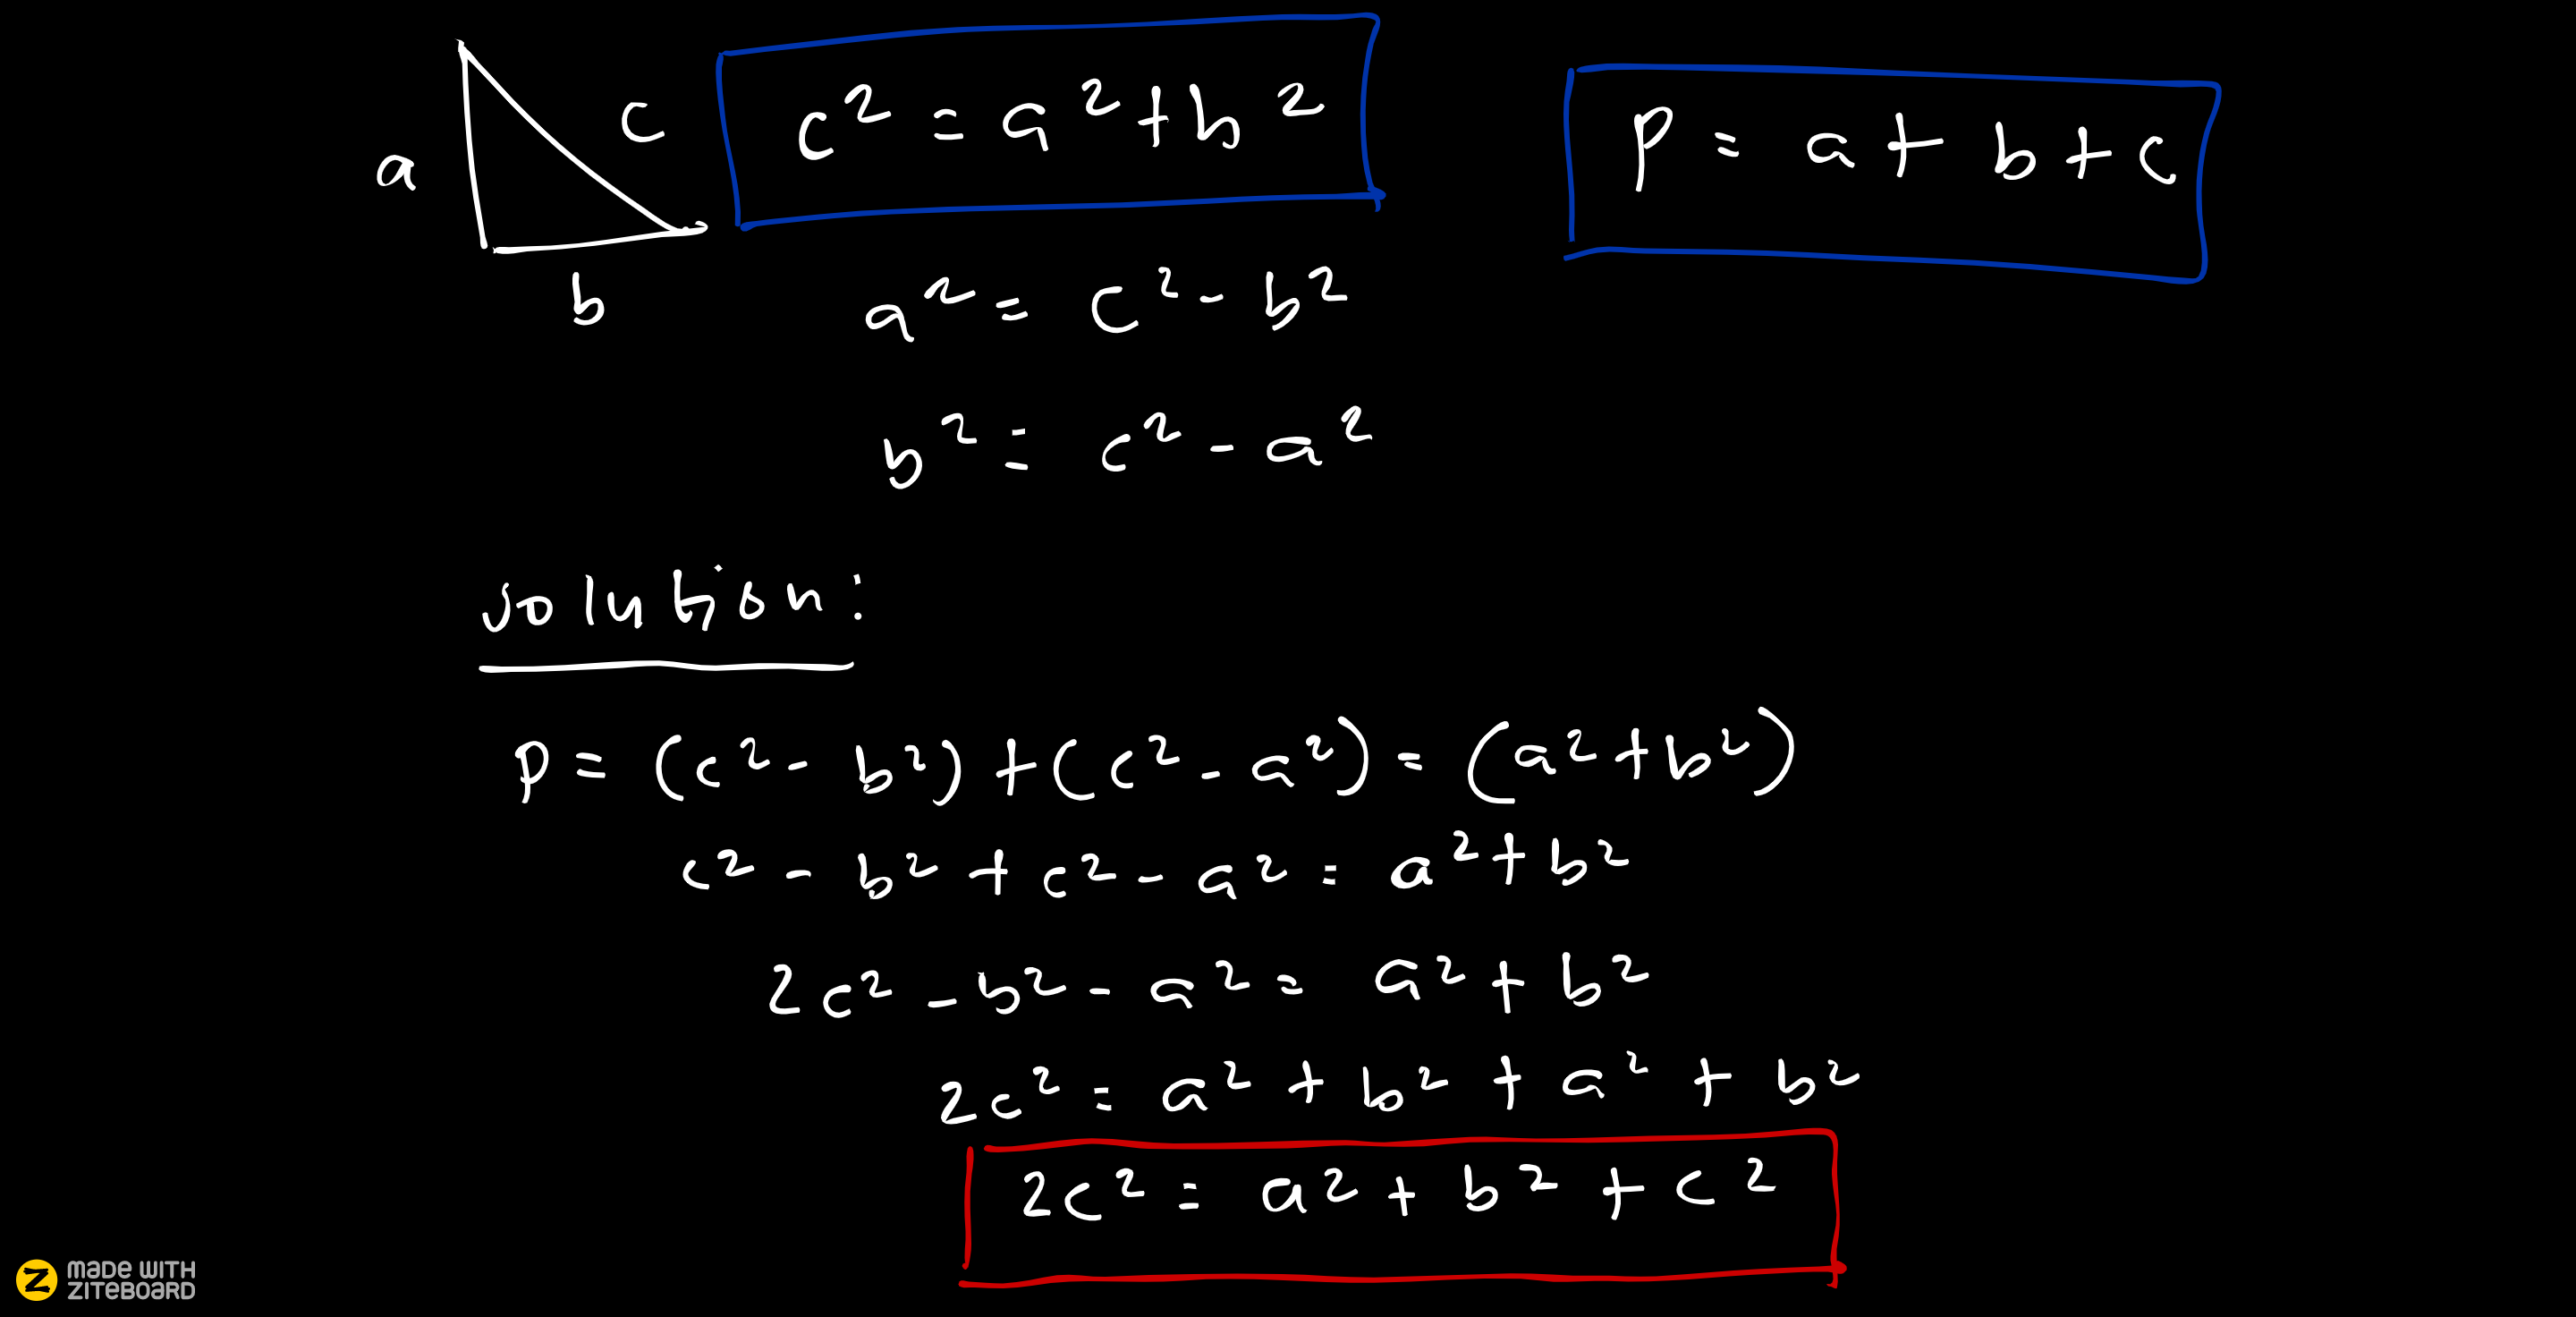 a
c
b
c² = a² + b²
P = a + b + c
a² = c² - b²
b² = c² - a²
solution:
P = (c² - b²) + (c² - a²) = (a² + b²)
c² - b² + c² - a² = a² + b²
2c² - b² - a² = a² + b²
2c² = a² + b² + a² + b²
2c² = a² + b² + c²
Z MADE WITH
ZITEBOARD